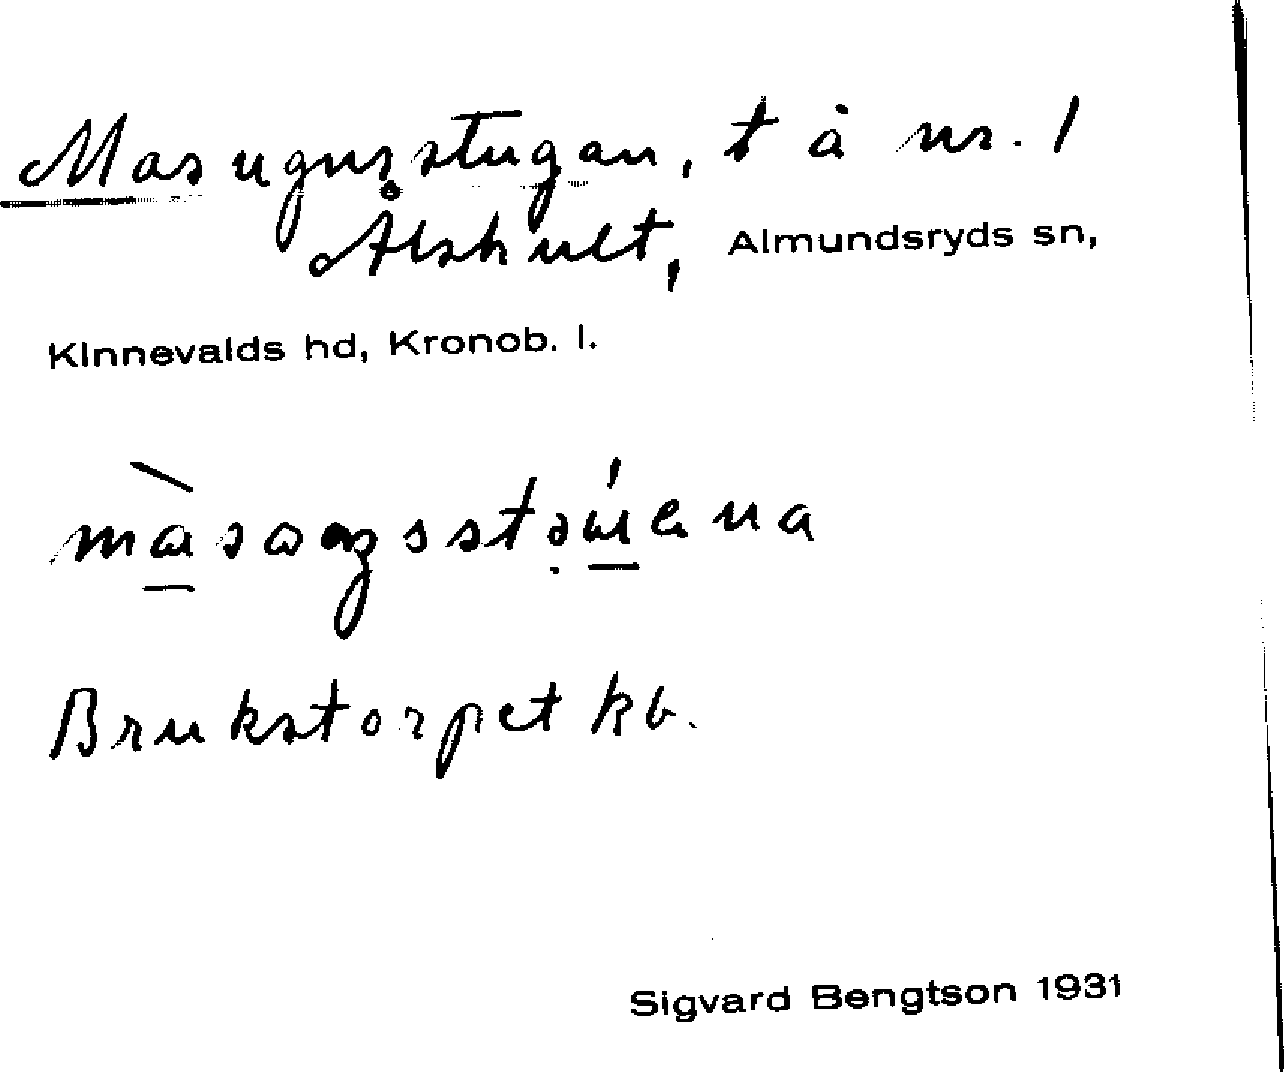 Masugnsstugan, t å nr. 1
Ålshult, Almundsryds sn,
Kinnevalds hd, Kronob. l.
Brukstorpet kb.
Sigvard Bengtson 1931